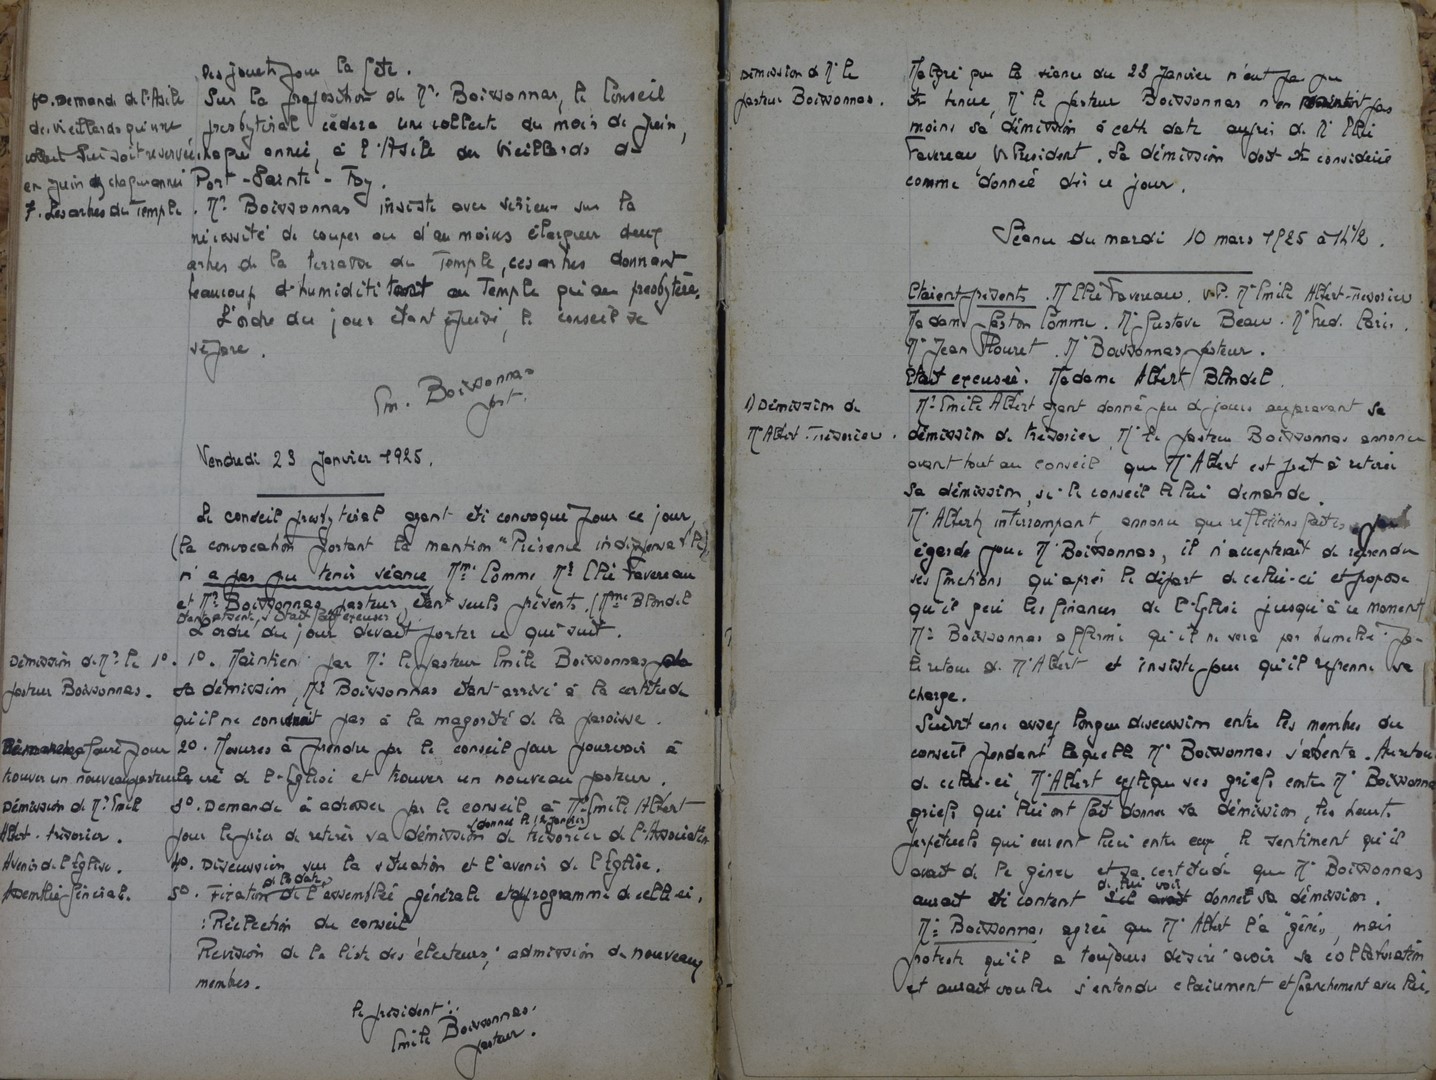 des jouets pour la fête.
6o. Demande de l'Asile
des vieillards qu'une
collecte lui soit réservée
en Juin de chaque année
Sur la proposition de Mr. Boissonnas, le Conseil
presbytéral cèdera une collecte du mois de Juin,
chaque année, à l'Asile des Vieillards de
Port-Sainte-Foy.
7. Les arbres du Temple
Mr. Boissonnas insiste avec sérieux sur la
nécessité de couper ou d'au moins élaguer deux
arbres de la terrasse du Temple, ces arbres donnant
beaucoup d'humidité tant au Temple qu'au presbytère.
L'ordre du jour étant épuisé, le conseil se
sépare.
Em. Boissonnas
past.
Vendredi 23 Janvier 1925.
Le conseil presbytéral ayant été convoqué pour ce jour,
(la convocation portant la mention "Présence indispensable")
n'a pas pu tenir séance, Mme Comme Mr. Elie Favereau
et Mr. Boissonnas, pasteur, étant seuls présents. (Mme Blondel
étant absente, s'était fait excuser)
L'ordre du jour devait porter ce qui suit.
Démission de Mr. le
pasteur Boissonnas.
1o. Maintien par Mr. le pasteur Emile Boissonnas de
sa démission, Mr. Boissonnas étant arrivé à la certitude
qu'il ne convenait pas à la majorité de la paroisse.
Démarches à faire pour
trouver un nouveau pasteur
2o. Mesures à prendre par le conseil pour pourvoir à
la vie de l'Eglise et trouver un nouveau pasteur.
Démission de Mr. Emile
Albert-trésorier.
3o. Demande à adresser par le conseil à Mr. Emile Albert
pour le prier de retirer sa démission de trésorier de l'Association
Avenir de l'Eglise.
4o. Discussion sur la situation et l'avenir de l'Eglise.
Assemblée Générale.
5o. Fixation de la date de l'assemblée générale et programme de celle ci.
: Réélection du conseil
Revision de la liste des électeurs; admission de nouveaux
membres.
le président:
Emile Boissonnas.
pasteur.
Démission de Mr. le
pasteur Boissonnas.
Malgré que la séance du 23 Janvier n'ait pas pu
être tenue, Mr. le pasteur Boissonnas n'en maintint pas
moins sa démission à cette date auprès de Mr. Elie
Favereau V. Président. Sa démission doit être considérée
comme donnée dès ce jour.
Séance du mardi 10 mars 1925 à 14h 1/2.
Etaient présents. M. Elie Favereau. V.P. Mr. Emile Albert-Trésorier
Madame Gaston Comme. Mr. Gustave Beau. Mr. Fred. Paris.
Mr. Jean Flouret. Mr. Boissonnas pasteur.
Etait excusée. Madame Albert Blondel.
1) Démission de
Mr. Albert-Trésorier.
Mr. Emile Albert ayant donné peu de jours auparavant sa
démission de trésorier, Mr. le pasteur Boissonnas annonce
avant tout au conseil que Mr. Albert est prêt à retirer
sa démission, si le conseil le lui demande.
Mr. Albert, interrompant, annonce que réflexions faites
égards pour Mr. Boissonnas, il n'accepterait de reprendre
ses fonctions qu'après le départ de celui-ci et propose
qu'il gère les finances de l'Eglise jusqu'à ce moment
Mr. Boissonnas affirme qu'il ne sera pas humilié par
le retour de Mr. Albert et insiste pour qu'il reprenne sa
charge.
Suivit une assez longue discussion entre les membres du
conseil pendant laquelle Mr. Boissonnas s'absenta. Au retour
de celui-ci, Mr. Albert explique ses griefs contre Mr. Boissonnas
griefs qui lui ont fait donner sa démission, les heurts
perpétuels qui eurent lieu entre eux, le sentiment qu'il
avait de le gêner et sa certitude que Mr. Boissonnas
aurait été content de lui voir donner sa démission.
Mr. Boissonnas agrée que Mr. Albert l'a "gêné", mais
proteste qu'il a toujours désiré avoir sa collaboration
et aurait voulu s'entendre clairement et franchement avec lui.